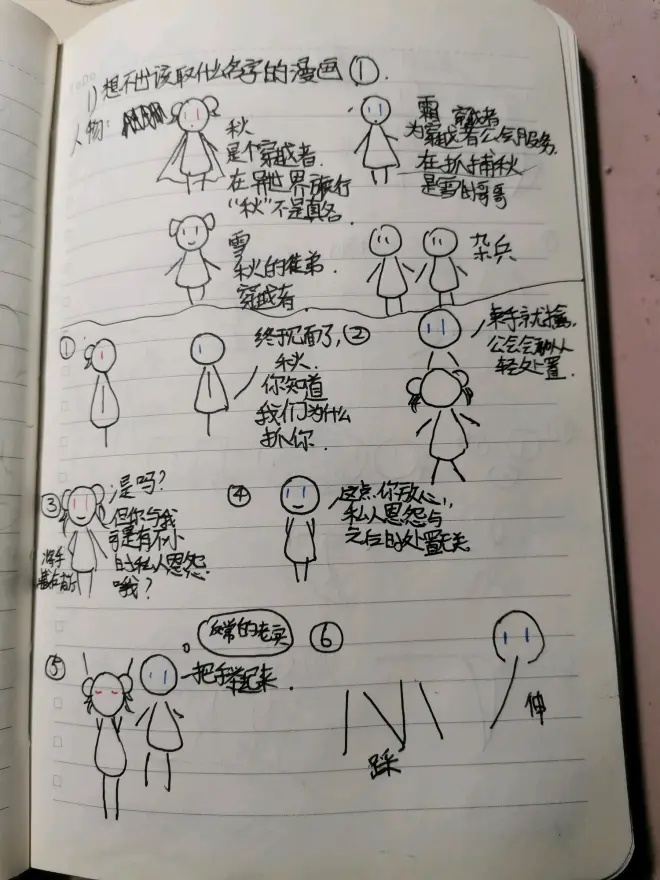 1) 想不出该取什么名字的漫画①.
人物:
秋
是个穿越者.
在异世界旅行
"秋"不是真名.
霜 穿越者
为穿越者公会服务.
在抓捕秋
是雪的哥哥
雪
秋的徒弟.
穿越者.
杂兵
①
终于见面了,
秋.
你知道
我们为什么
抓你.
②
束手就擒,
公会会
轻处置.
③
是吗?
但你与我
可是有不小
的私人恩怨.
哦?
④
这点你放心,
私人恩怨与
之后的处置无关
⑤
反常的老实
把手举起来.
⑥
踩
伸